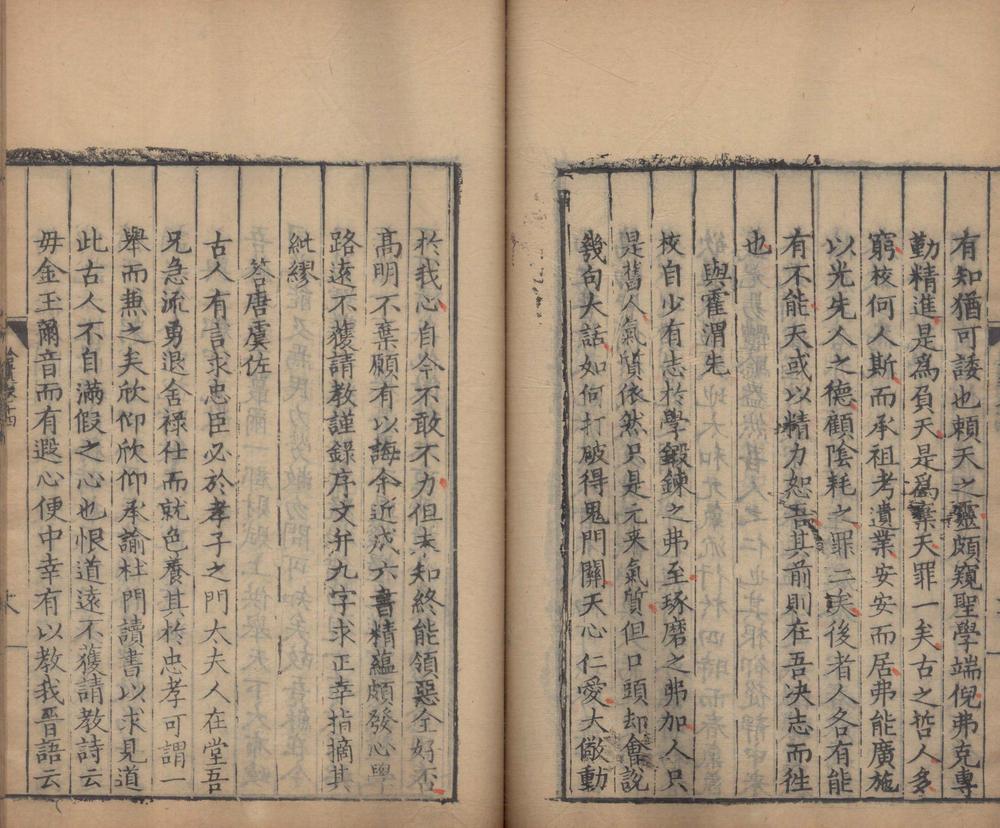 有知猶可諉也賴天之靈頗窺聖學端倪弗克專
勤精進是爲負天是爲棄天罪一矣古之哲人多
窮校何人斯而承祖考遺業安安而居弗能廣施
以光先人之德顧陰耗之罪二矣後者人各有能
有不能天或以精力恕吾其前則在吾决志而徃
也
與霍渭先
校自少有志於學鍛鍊之弗至琢磨之弗加人只
是舊人氣質依然只是元来氣質但口頭却會說
幾句大話如何打破得鬼門關天心仁愛大儆動
於我心自今不敢不力但未知終能領惡全好否
髙明不棄願有以誨余近成六書精蘊頗發心學
路逺不獲請教謹錄序文并九字求正幸指摘其
紕繆
答唐虞佐
古人有言求忠臣必於孝子之門太夫人在堂吾
兄急流勇退舍祿仕而就色養其於忠孝可謂一
舉而兼之矣欣仰欣仰承諭杜門讀書以求見道
此古人不自滿假之心也恨道逺不獲請教詩云
毋金玉爾音而有遐心便中幸有以教我晋語云